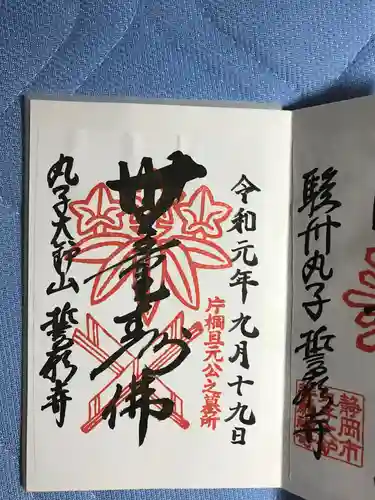 令和元年九月十九日
片桐且元公之墓所
無量寿佛
丸子大鈩山 誓願寺
駿州丸子 誓願寺
静岡市